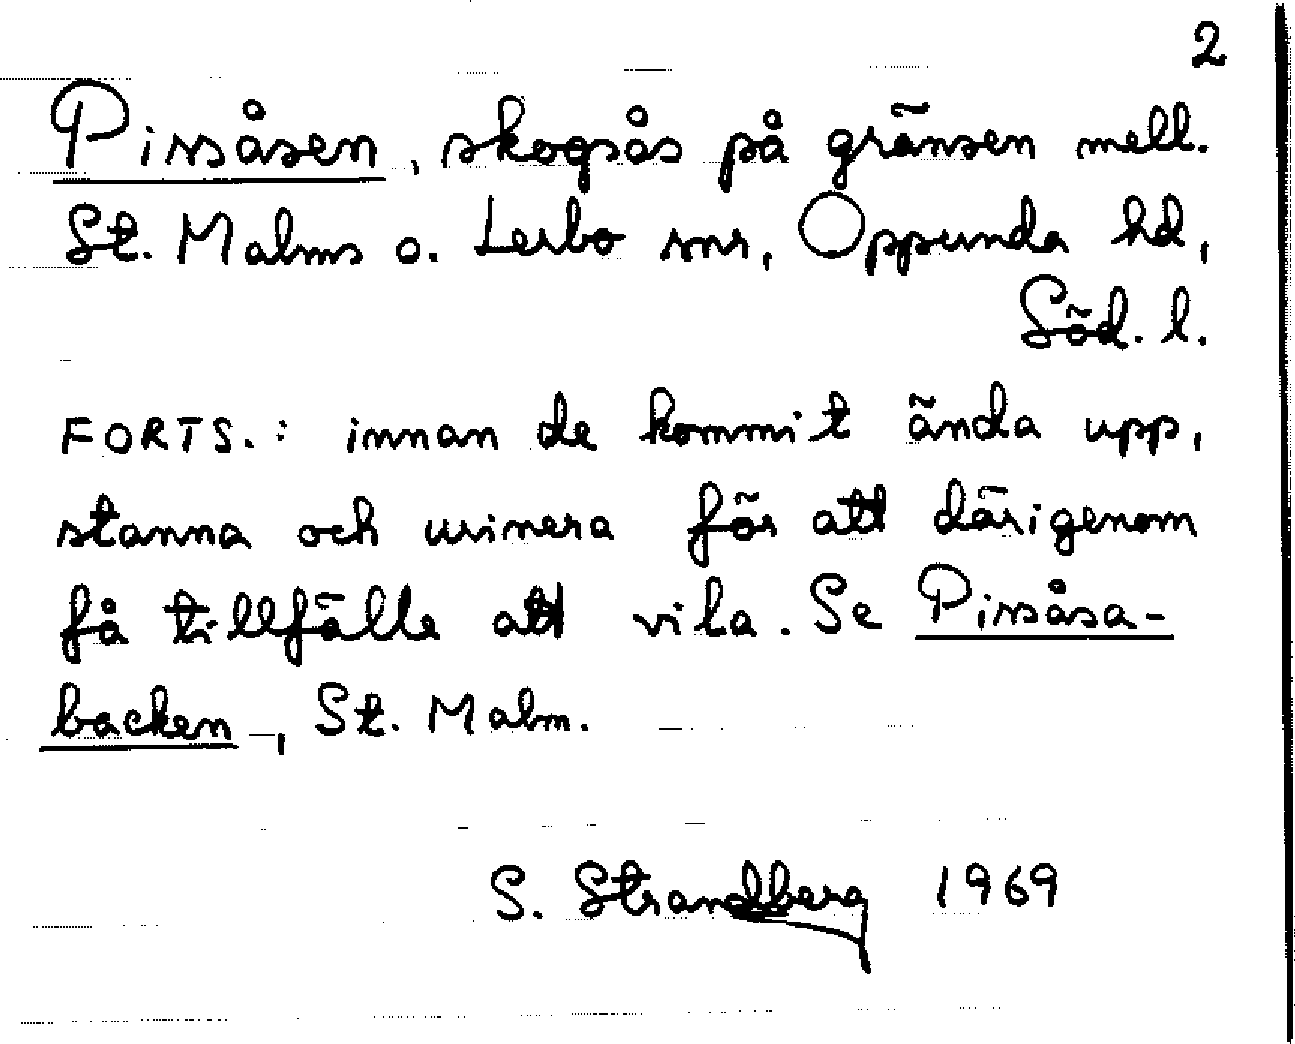 2
Pissåsen, skogsås på gränsen mell.
St. Malms o. Lerbo snr, Oppunda hd,
Söd. l.
FORTS.: innan de kommit ända upp,
stanna och urinera för att därigenom
få tillfälle att vila. Se Pissåsa-
backen, St. Malm.
S. Strandberg 1969